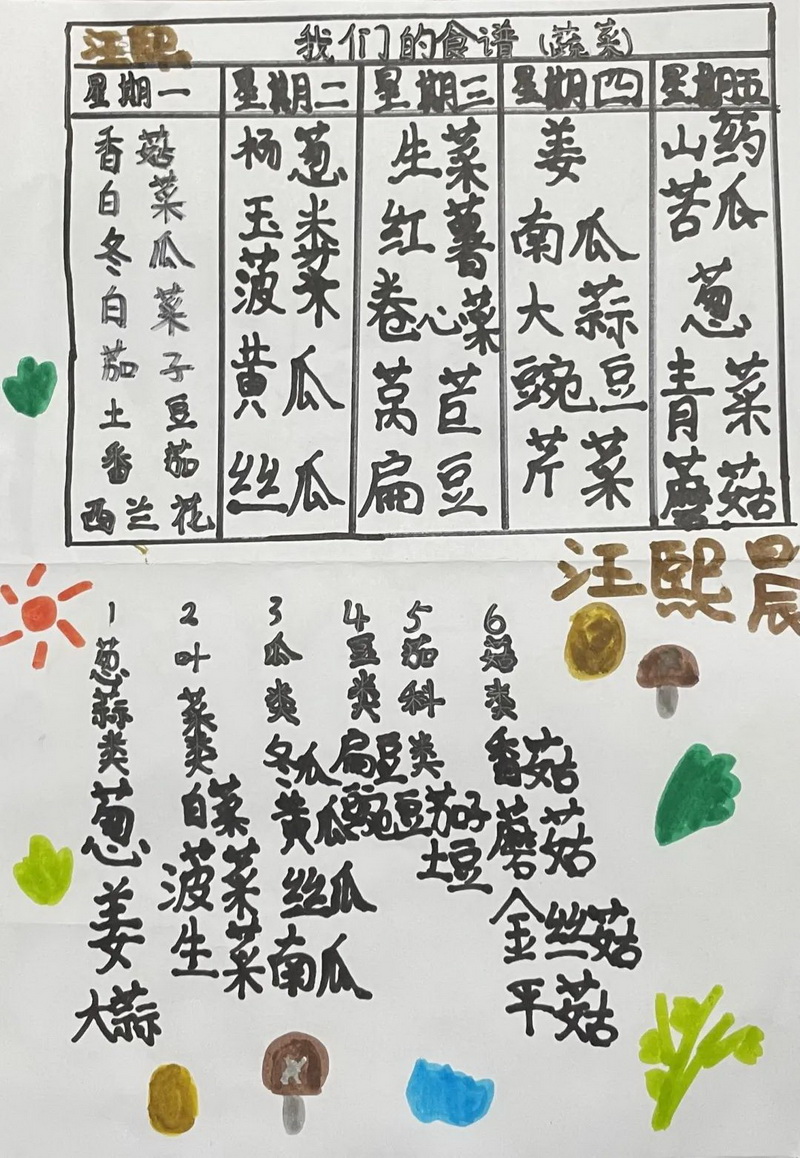 汪熙
我们的食谱（蔬菜）
星期一
香菇
白菜
冬瓜
白菜
茄子
土豆
番茄
西兰花
星期二
杨葱
玉米
菠菜
黄瓜
丝瓜
星期三
生菜
红薯
卷心菜
莴苣
扁豆
星期四
姜
南瓜
大蒜
豌豆
芹菜
星期五
山药
苦瓜
葱
青菜
蘑菇
汪熙晨
1葱蒜类
葱
姜
大蒜
2叶菜类
白菜
菠菜
生菜
3瓜类
冬瓜
黄瓜
丝瓜
南瓜
4豆类
扁豆
豌豆
5茄科类
茄子
土豆
6菇类
香菇
蘑菇
金丝菇
平菇